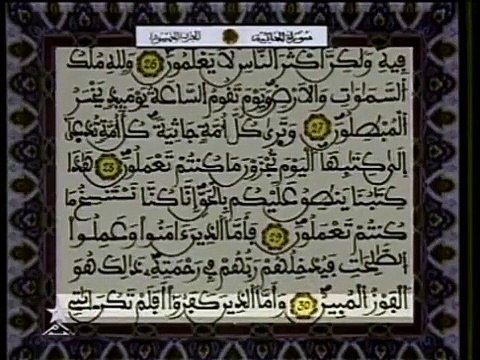 سورة الجاثية
فيه ولكن أكثر الناس لا يعلمون 26 ولله ملك
السموات والارض ويوم تقوم الساعة يومئذ يخسر
المبطلون 27 وترى كل أمة جاثية كل أمة تدعى
إلى كتبها اليوم تجزون ما كنتم تعملون 28 هذا
كتبنا ينطق عليكم بالحق إنا كنا نستنسخ ما
كنتم تعملون 29 فأما الذين ءامنوا وعملوا
الصلحت فيدخلهم ربهم في رحمته ذلك هو
الفوز المبين 30 وأما الذين كفروا أفلم تكن ءايتي